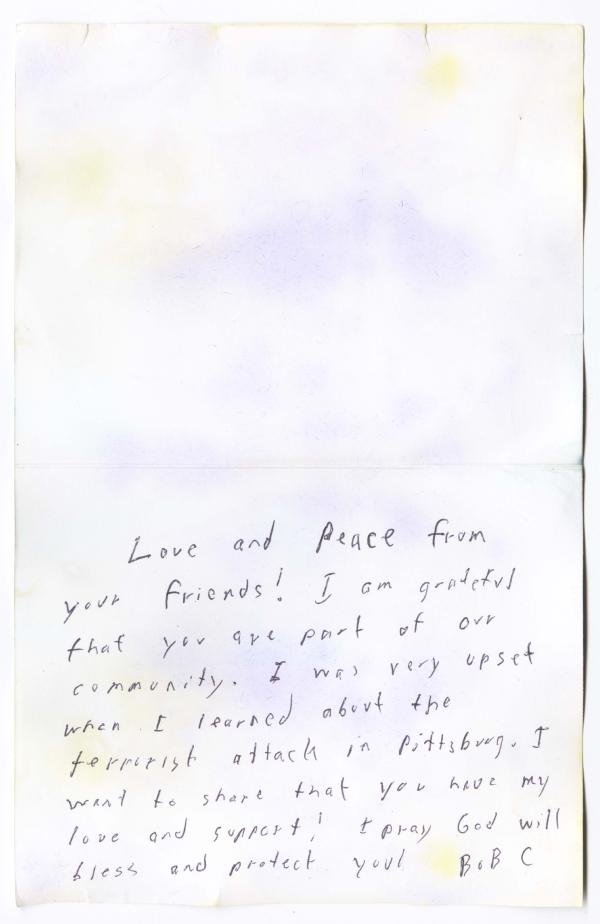 Love and Peace from
your friends! I am grateful
that you are part of our
community. I was very upset
when I learned about the
terrorist attack in Pittsburg. I
want to share that you have my
love and support! I pray God will
bless and protect you! BoB C